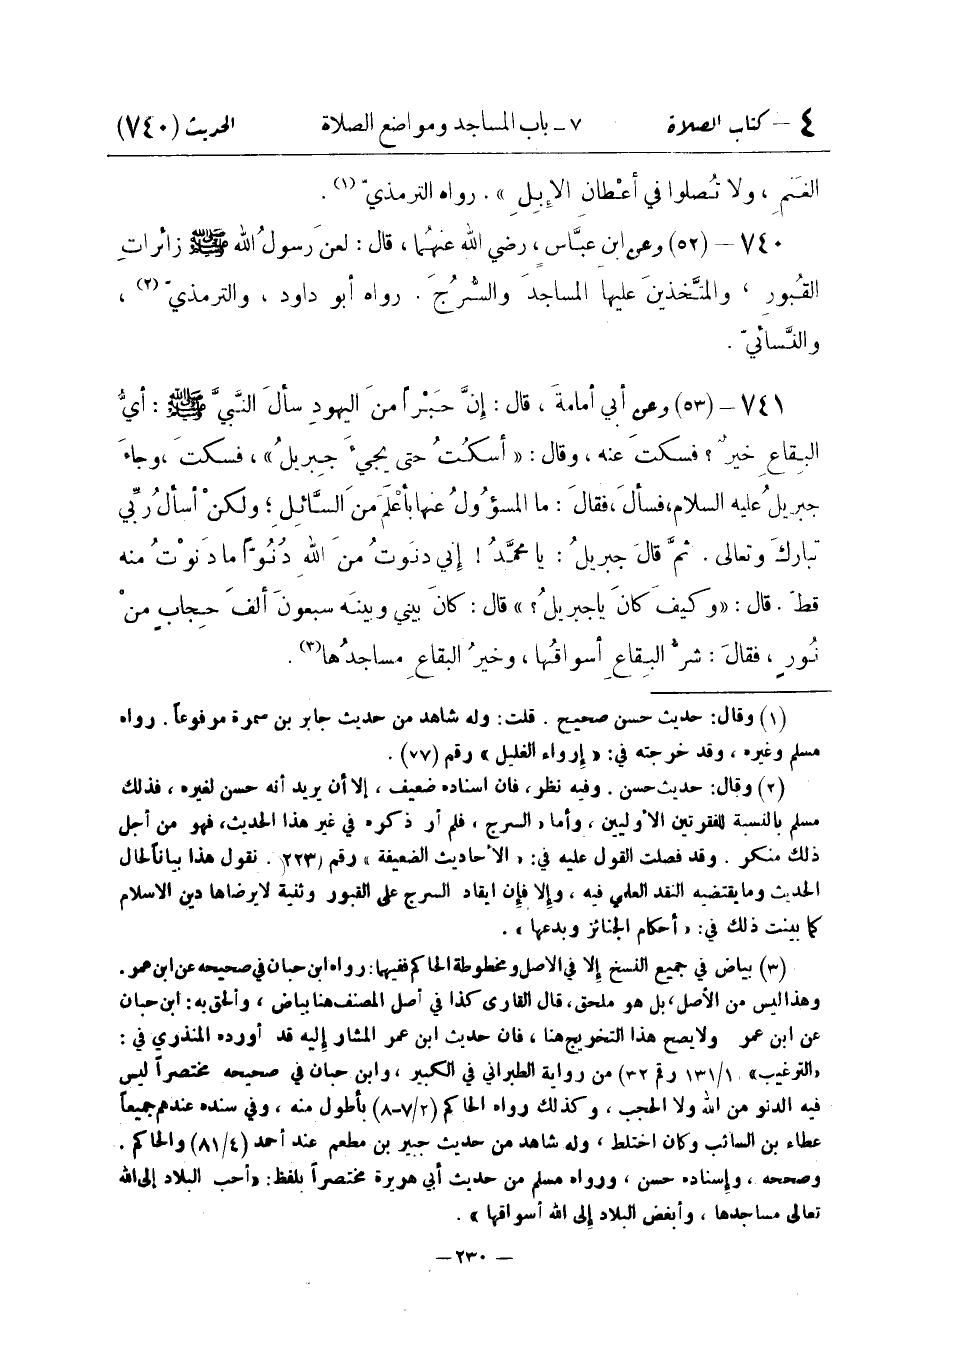 ٤ – كتاب الصلاة ٧ ـ باب المساجد ومواضع الصلاة الحديث (٧٤٠)
الغَنَمِ ، ولا تُصلوا في أعْطانِ الإِبِلِ » . رواه الترمذيّ (١) .
٧٤٠ – (٥٢) وعن ابنِ عبَّاسٍ ، رضي الله عنهُما ، قال : لعن رسولُ الله ﷺ زائراتِ
القُبورِ ، والمتَّخذينَ عليها المساجدَ والسُّرُجَ . رواه أبو داود ، والترمذيّ (٢) ،
والنَّسائيّ .
٧٤١ – (٥٣) وعن أبي أمامةَ ، قال : إنَّ حَبْراً منَ اليهودِ سألَ النَّبيَّ ﷺ : أيُّ
البِقاعِ خيرٌ ؟ فسكتَ عنه ، وقال : « أسكُتُ حتى يجيءَ جبريلُ » ، فسكتَ ، وجاءَ
جبريلُ عليه السلام ، فسألَ ، فقالَ : ما المسؤولُ عنها بأعْلَمَ منَ السَّائلِ ؛ ولكنْ أسألُ ربِّي
تباركَ وتعالى . ثمَّ قالَ جبريلُ : يا محمَّدُ ! إني دنوتُ منَ اللهِ دُنُوّاً ما دَنوْتُ منه
قطّ . قال : « وكيف كانَ ياجبريلُ ؟ » قال : كانَ بيني وبينَه سبعونَ ألفَ حِجابٍ منْ
نُورٍ ، فقالَ : شرُّ البِقاعِ أسواقُها ، وخيرُ البقاعِ مساجدُها (٣) .
(١) وقال: حديث حسن صحيح . قلت: وله شاهد من حديث جابر بن سمرة مرفوعاً . رواه
مسلم وغيره ، وقد خرجته في: « إرواء الغليل » رقم (٧٧) .
(٢) وقال: حديث حسن . وفيه نظر، فان اسناده ضعيف ، إلا أن يريد أنه حسن لغيره ، فذلك
مسلم بالنسبة للفقرتين الأوليين ، وأما « السرج ، فلم أر ذكره في غير هذا الحديث، فهو من أجل
ذلك منكر . وقد فصلت القول عليه في: « الأحاديث الضعيفة » رقم (٢٢٣) . نقول هذا بياناً لحال
الحديث وما يقتضيه النقد العلمي فيه ، وإلا فإن ايقاد السرج على القبور وثنية لا يرضاها دين الاسلام
كما بينت ذلك في: « أحكام الجنائز وبدعها » .
(٣) بياض في جميع النسخ إلا في الاصل ومخطوطة الحاكم ففيها: رواه ابن حبان في صحيحه عن ابن عمر .
وهذا ليس من الأصل، بل هو ملحق، قال القارى كذا في أصل المصنف هنا بياض ، وألحق به: ابن حبان
عن ابن عمر ولا يصح هذا التخريج هنا ، فان حديث ابن عمر المشار إليه قد أورده المنذري في :
«الترغيب» ١/١٣١ رقم ٣٢) من رواية الطبراني في الكبير ، وابن حبان في صحيحه مختصراً ليس
فيه الدنو من الله ولا الحجب ، وكذلك رواه الحاكم (٢/٧–٨) بأطول منه ، وفي سنده عندهم جميعاً
عطاء بن السائب وكان اختلط ، وله شاهد من حديث جبير بن مطعم عند أحمد (٤/٨١) والحاكم .
وصححه ، وإسناده حسن ، ورواه مسلم من حديث أبي هريرة مختصراً بلفظ: «أحب البلاد إلى الله
تعالى مساجدها ، وأبغض البلاد إلى الله أسواقها » .
– ٢٣٠ –